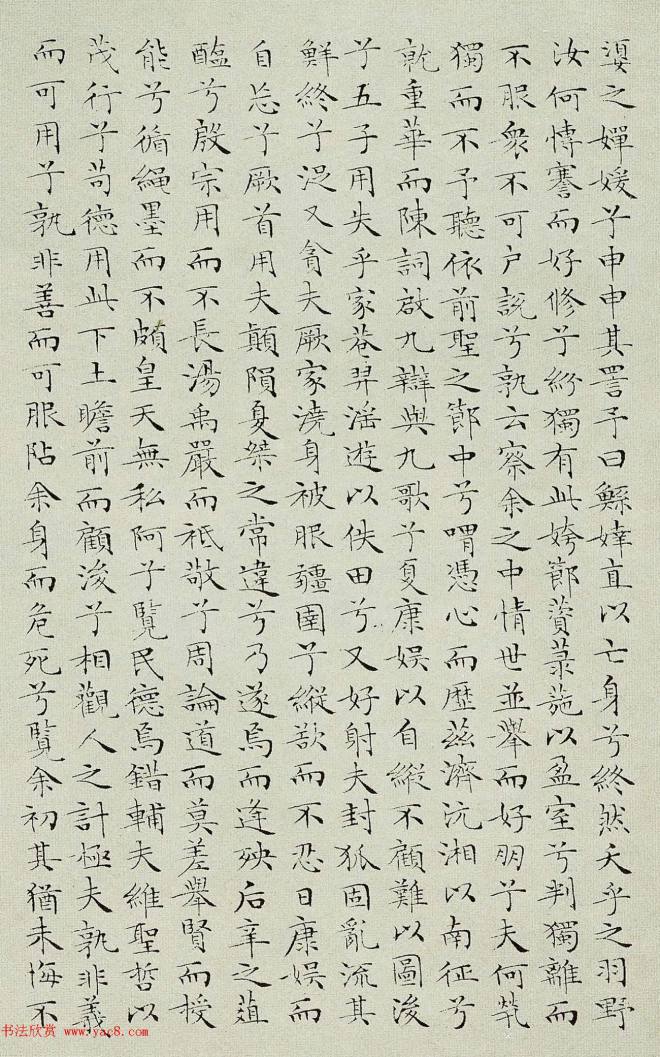 嬃之嬋媛兮申申其詈予曰鯀婞直以亡身兮終然夭乎之羽野
汝何博謇而好修兮紛獨有此姱節薋菉葹以盈室兮判獨離而
不服衆不可户説兮孰云察余之中情世並舉而好朋兮夫何煢
獨而不予聽依前聖之節中兮喟憑心而歷茲濟沅湘以南征兮
就重華而陳詞啟九辯與九歌兮夏康娛以自縱不顧難以圖後
兮五子用失乎家巷羿淫遊以佚田兮又好射夫封狐固亂流其
鮮終兮浞又貪夫厥家澆身被服疆圉兮縱欲而不忍日康娛而
自忘兮厥首用夫顛隕夏桀之常違兮乃遂焉而逢殃后辛之菹
醢兮殷宗用而不長湯禹嚴而祗敬兮周論道而莫差舉賢而授
能兮循繩墨而不頗皇天無私阿兮覽民德焉錯輔夫維聖哲以
茂行兮苟德用此下土瞻前而顧後兮相觀人之計極夫孰非義
而可用兮孰非善而可服阽余身而危死兮覽余初其猶未悔不
书法欣赏 www.yac8.com